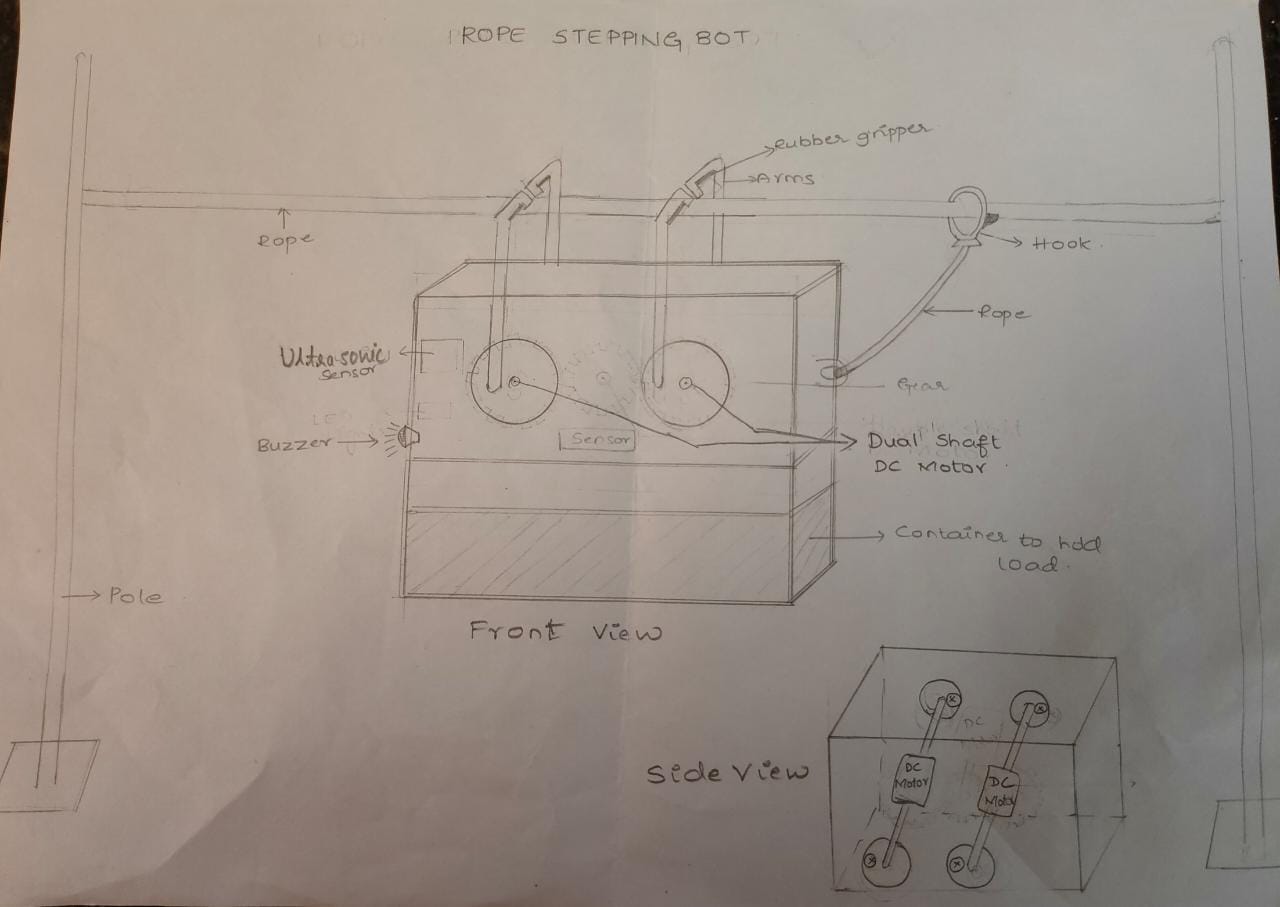 ROPE STEPPING BOT
Rubber gripper
Arms
Rope
Hook
Rope
Ultrasonic
Sensor
Gear
Buzzer
Sensor
Dual Shaft
DC Motor
Container to hold
load.
Pole
Front View
Side View
DC
DC
Motor
DC
Motor